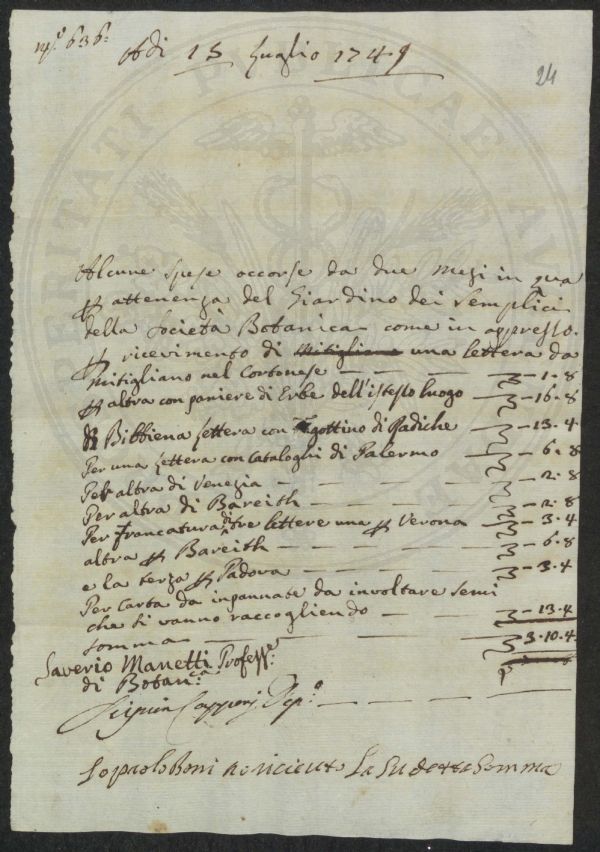 636.
Adi 15 Luglio 1749
24
Alcune spese occorse da due mesi in qua
attenenza del Giardino dei Semplici
della Società Botanica come in appresso.
ricevimento di mitigliano una lettera da
mitigliano nel Cortonese — 1. 8
altra con paniere di Erbe dell'istesso luogo — 16. 8
Di Bibbiena Lettera con fagottino di Radiche — 13. 4
Per una Lettera con Cataloghi di Palermo — 6. 8
Per altra di Venezia — 2. 8
Per altra di Bareith — 2. 8
Per Francatura di tre lettere una Verona — 3. 4
altra Bareith — 6. 8
e la terza Padova — 3. 4
Per Carta da inpannate da involtare Semi
che si vanno raccogliendo — 13. 4
Somma — 3. 10. 4
Saverio Manetti Profess.e
di Botan.ca
Capponi
Io paolo Boni ho riceuto La Su detta Somma
PERITATI PUBLICAE